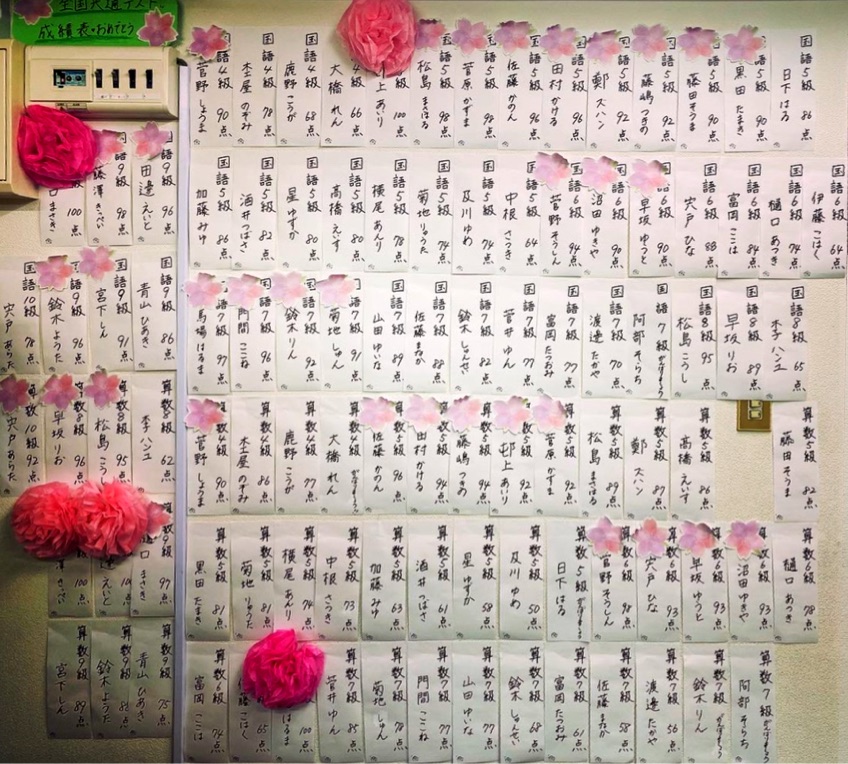 全国共通テスト
成績表。おめでとう
国語4級 菅野 しょうま 90点
国語4級 木屋 のぞみ 78点
国語4級 鹿野 こうが 68点
国語4級 大橋 れん 66点
上 あいり 100点
国語5級 松島 まさはる 98点
国語5級 菅原 かずま 98点
国語5級 佐藤 かのん 96点
国語5級 田村 かける 96点
国語5級 鄭 スハン 92点
国語5級 藤嶋 つきの 92点
国語5級 藤田 そうま 90点
国語5級 黒田 たまき 90点
国語5級 日下 はる 86点
国語5級 加藤 みゆ 86点
国語5級 酒井 つばさ 82点
国語5級 星 ゆずか 80点
国語5級 高橋 えいす 80点
国語5級 横尾 あんり 78点
国語5級 菊地 りゅうた 74点
国語5級 及川 ゆめ 74点
国語5級 中根 さつき 64点
国語6級 菅野 そうしん 94点
国語6級 沼田 ゆきや 90点
国語6級 早坂 ゆうと 90点
国語6級 宍戸 ひな 88点
国語6級 富岡 ここは 84点
国語6級 樋口 あつき 74点
国語6級 伊藤 こはく 64点
国語7級 馬場 はるま 97点
国語7級 門間 ここね 96点
国語7級 鈴木 りん 92点
国語7級 菊地 しゅん 91点
国語7級 山田 ゆいな 89点
国語7級 佐藤 まなか 88点
国語7級 鈴木 しゅんせい 82点
国語7級 菅井 ゆん 77点
国語7級 富岡 たつおみ 77点
国語7級 渡邊 たかや 70点
国語7級 阿部 そらち がんばりましょう
国語8級 松島 こうし 95点
国語8級 早坂 りお 89点
国語8級 李 ハンユ 65点
算数4級 菅野 しょうま 90点
算数4級 木屋 のぞみ 86点
算数4級 鹿野 こうが 77点
算数4級 大橋 れん
算数5級 佐藤 かのん 96点
算数5級 田村 かける 94点
算数5級 藤嶋 つきの 94点
算数5級 上 あいり 92点
算数5級 菅原 かずま 92点
算数5級 松島 まさはる 89点
算数5級 鄭 スハン 87点
算数5級 高橋 えいす 86点
算数5級 藤田 そうま 82点
算数5級 黒田 たまき 81点
算数5級 菊地 りゅうた 81点
算数5級 横尾 あんり 74点
算数5級 中根 さつき 73点
算数5級 加藤 みゆ 63点
算数5級 酒井 つばさ 61点
算数5級 星 ゆずか 58点
算数5級 及川 ゆめ 50点
算数5級 日下 はる
算数6級 菅野 そうしん 98点
算数6級 宍戸 ひな 93点
算数6級 早坂 ゆうと 93点
算数6級 沼田 ゆきや 93点
算数6級 樋口 あつき 78点
算数6級 富岡 ここは 74点
藤 こはく 65点
はるま 100点
算数7級 菅井 ゆん 85点
算数7級 菊地 しゅん 78点
算数7級 門間 ここね 77点
算数7級 山田 ゆいな 77点
算数7級 鈴木 しゅんせい 68点
算数7級 富岡 たつおみ 61点
算数7級 佐藤 まなか 58点
算数7級 渡邊 たかや 56点
算数7級 鈴木 りん がんばりましょう
算数7級 阿部 そらち がんばりましょう
国語9級 田邊 えいと 96点
9級 藤澤 きっせい 98点
口 まさき 100点
国語9級 青山 ひあき 86点
国語9級 宮下 しん 91点
国語9級 鈴木 ようた 96点
国語10級 宍戸 あらた 78点
算数8級 李 ハンユ 62点
算数8級 松島 こうし 95点
算数8級 早坂 りお 96点
算数10級 宍戸 あらた 92点
口 まさき 97点
えいと
きっせい 100点
算数9級 青山 ひあき 75点
算数9級 鈴木 ようた 86点
算数9級 宮下 しん 89点